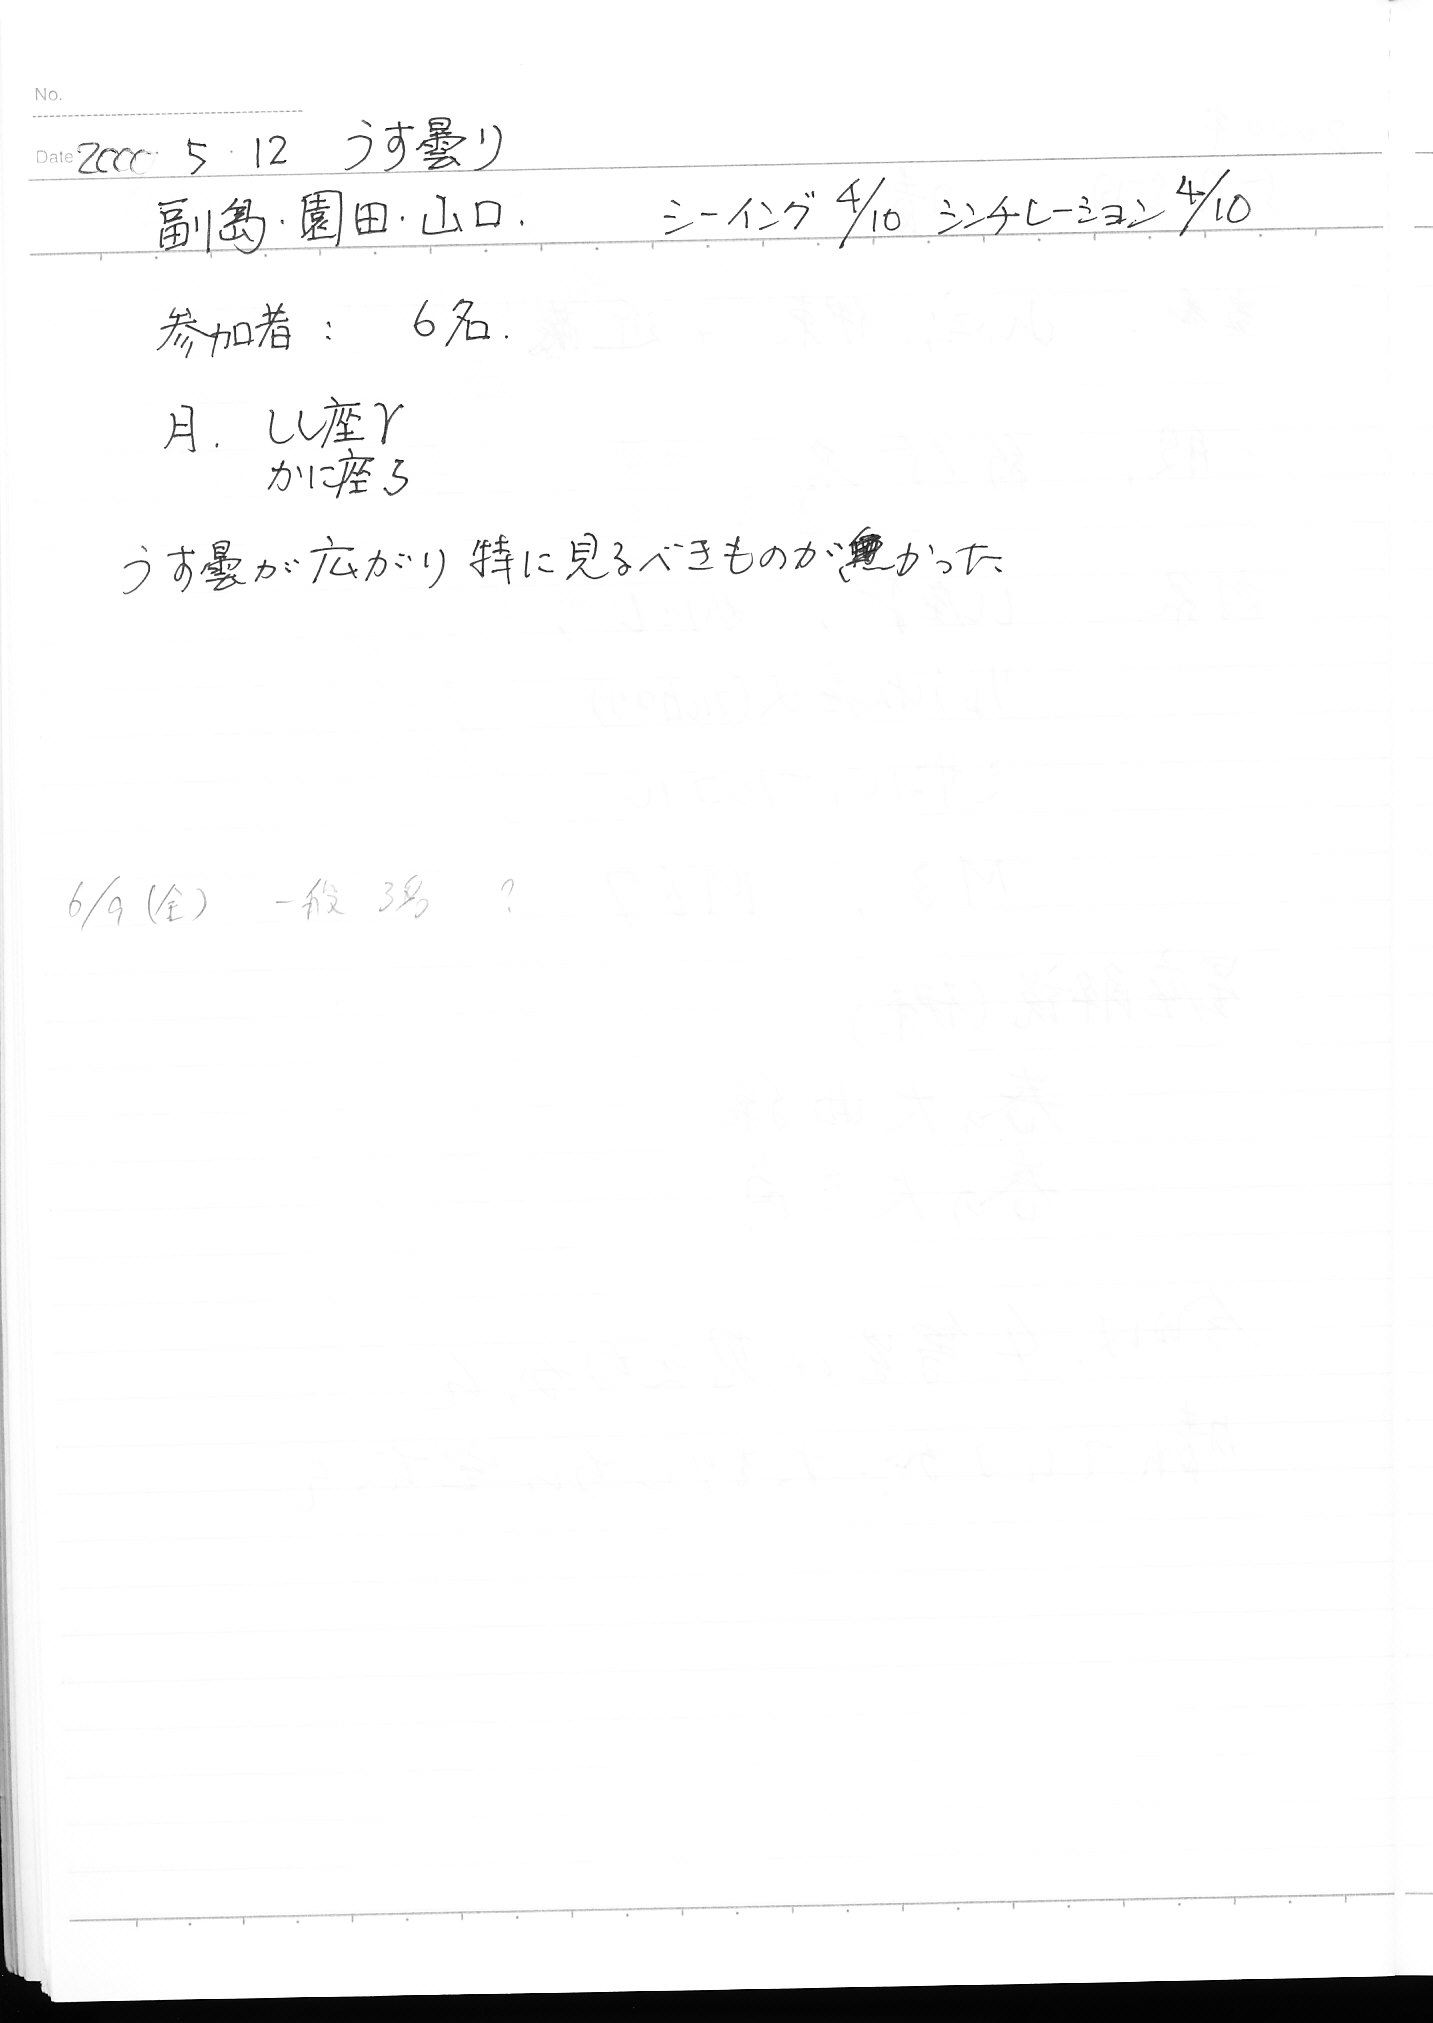 No.
Date 2000 5・12 うす曇り
副島・園田・山口. シーイング 4/10 シンチレーション 4/10
参加者: 6名.
月. しし座γ
かに座ζ
うす曇が広がり 特に見るべきものが無かった
6/9(金) 一般 3名 ?